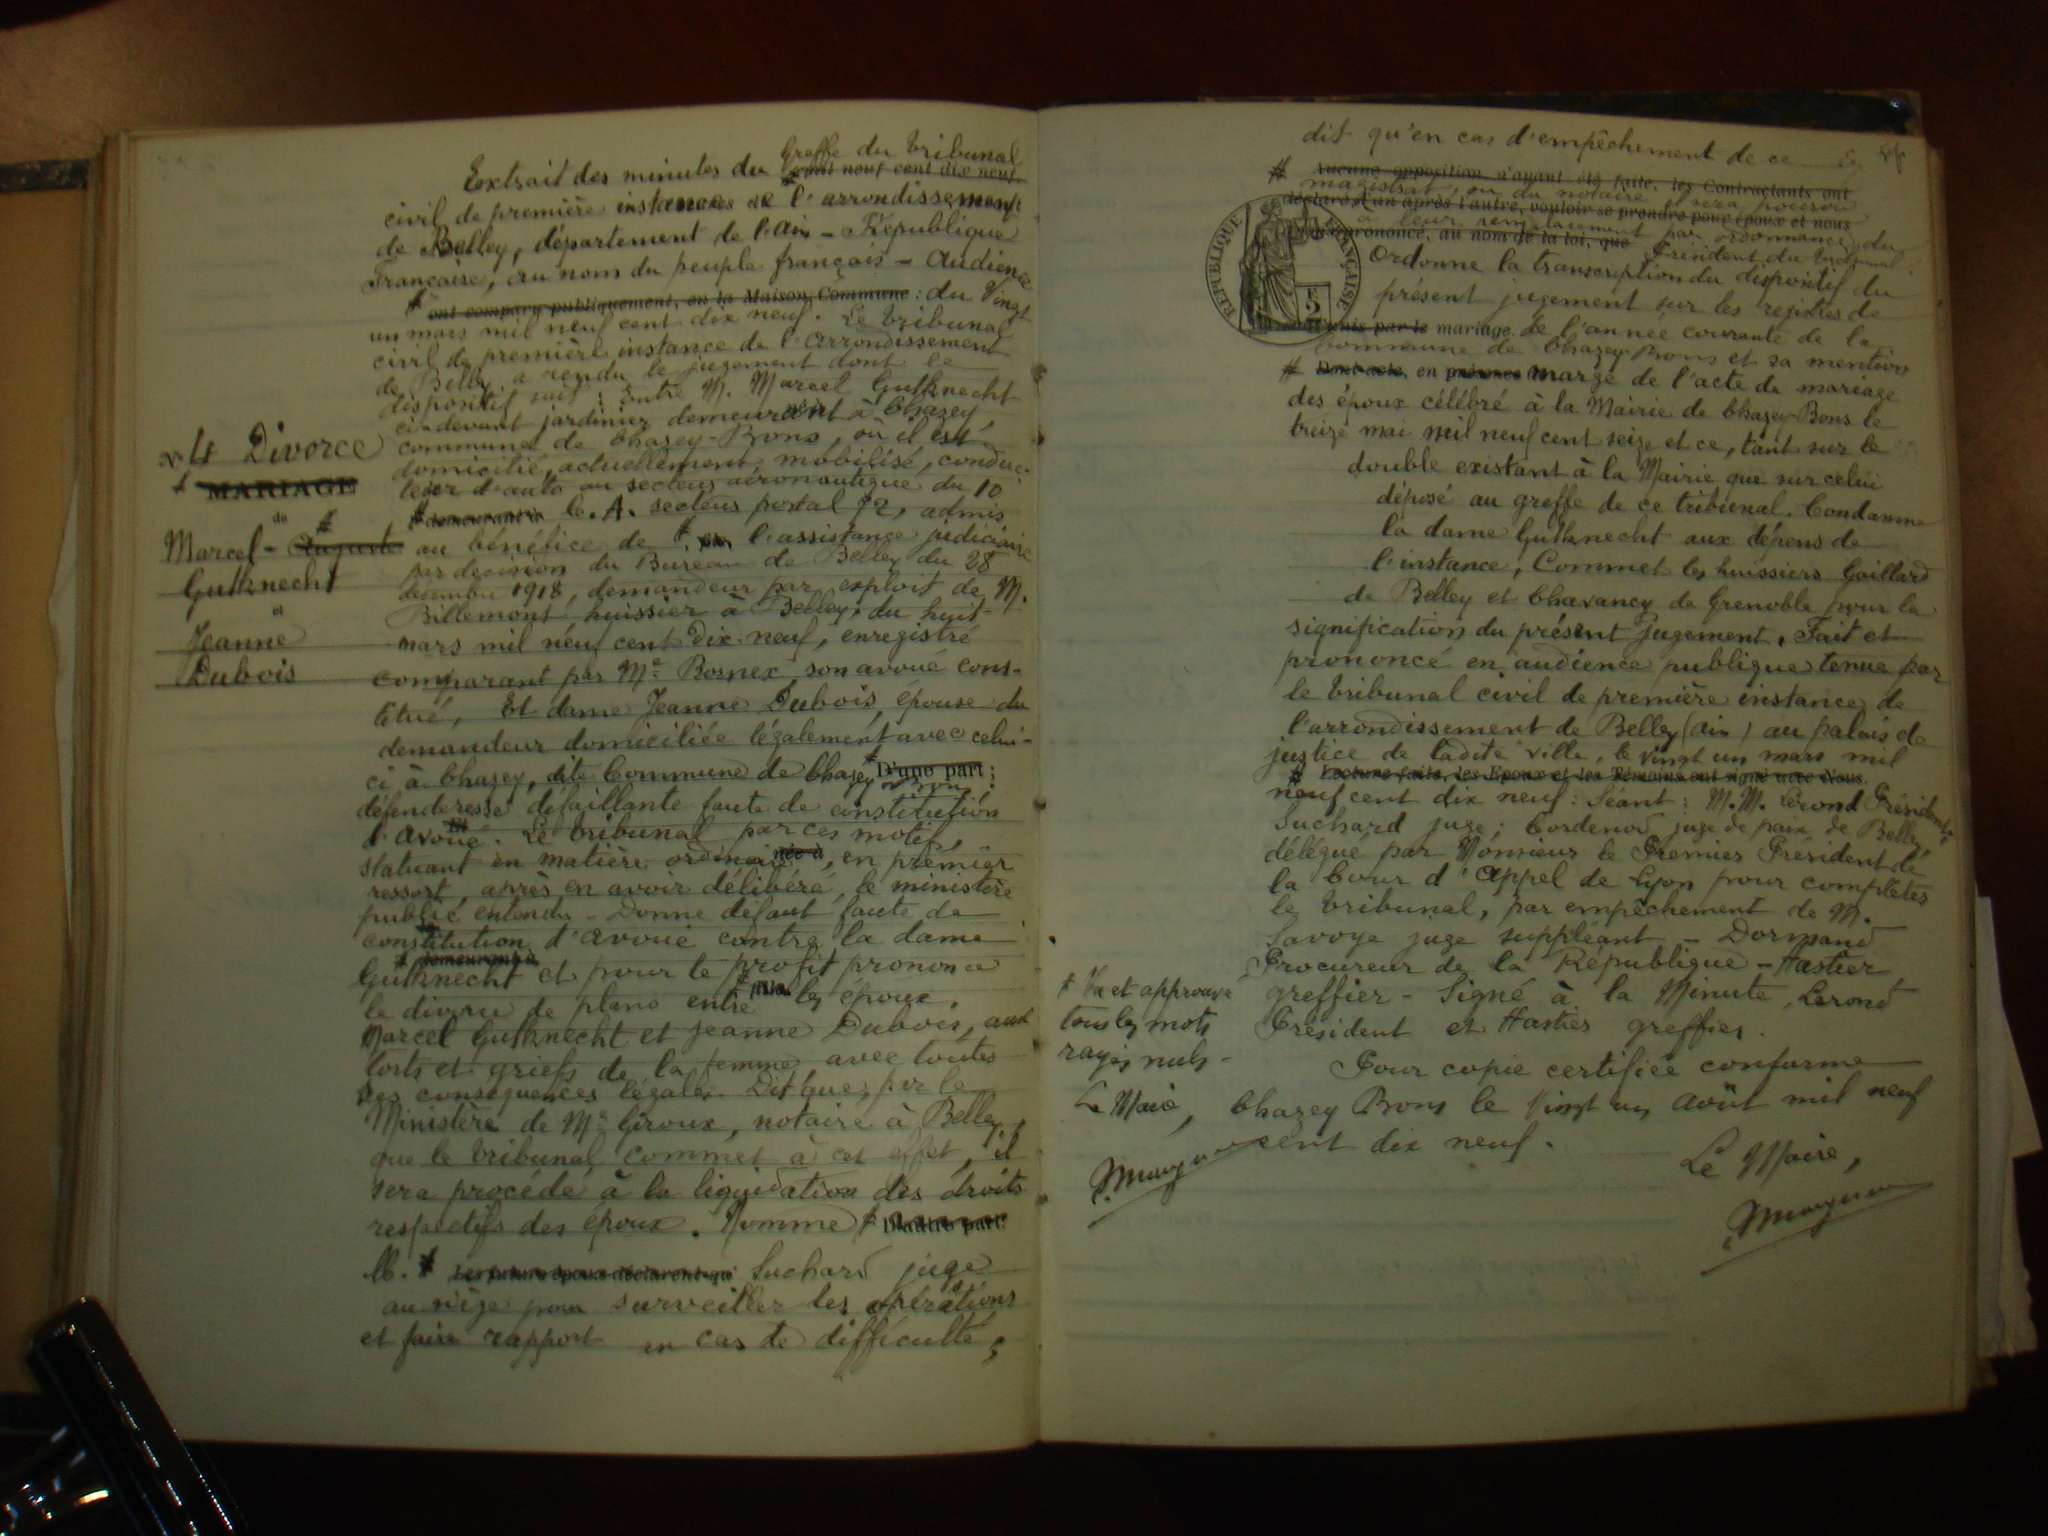 Extrait des minutes du Greffe du Tribunal
mil neuf cent dix neuf
civil de première instance de l'arrondissement
de Belley, département de l'Ain - République
Française, au nom du peuple français - Audience
# ont comparu publiquement, en la Maison Commune : du Vingt
un mars mil neuf cent dix neuf. Le Tribunal
civil de première instance de l'Arrondissement
de Belley a rendu le jugement dont le
dispositif suit : Entre M. Marcel Gutknecht
ci-devant jardinier demeurant à Chazey
commune de Chazey-Bons, où il est
domicilié, actuellement mobilisé, conduc-
teur d'auto au secteur aéronautique du 10
# demeurant à C. A. secteur postal 92, admis
au bénéfice de # l'assistance judiciaire
par décision du Bureau de Belley du 28
décembre 1918, demandeur par exploit de M.
Billemont huissier à Belley, du huit
mars mil neuf cent dix-neuf, enregistré
comparant par Me Bornex, son avoué cons-
titué, Et dame Jeanne Dubois, épouse du
demandeur domiciliée légalement avec celui-
ci à Chazey, dite Commune de Chazey D'une part ;
Bons
défenderesse défaillante faute de constitution
d'Avoué. Le Tribunal par ces motifs,
statuant en matière ordinaire née à, en premier
ressort, après en avoir délibéré, le ministère
public entendu - Donne défaut faute de
constitution d'avoué contre la dame
# demeurant à
Gutknecht et pour le profit prononce
le divorce de plano entre les époux,
Marcel Gutknecht et Jeanne Dubois, aux
torts et griefs de la femme avec toutes
ses conséquences légales. Dit que, par le
Ministère de Me Giroux, notaire à Belley,
que le tribunal commet à cet effet, il
sera procédé à la liquidation des droits
respectifs des époux. Nomme # D'autre part.
M. # Les futurs époux déclarent que Suchard juge
au siège pour surveiller les opérations
et faire rapport en cas de difficulté ;
No 4 Divorce
# MARIAGE
de #
Marcel - Auguste
Gutknecht
et
Jeanne
Dubois
dit qu'en cas d'empêchement de ce
# Aucune opposition n'ayant été faite, les Contractants ont
magistrat, ou du notaire il sera pourvu
déclaré l'un après l'autre, vouloir se prendre pour époux et nous
à leur remplacement par ordonnance du
avons prononcé, au nom de la loi, que Président du Tribunal.
RÉPUBLIQUE FRANÇAISE
Ordonne la transcription du dispositif du
présent jugement sur les registres de
unis par le mariage de l'année courante de la
Commune de Chazey-Bons et sa mention
# Dont acte, en présence marge de l'acte de mariage
des époux célébré à la Mairie de Chazey-Bons le
treize mai mil neuf cent seize et ce, tant sur le
double existant à la Mairie que sur celui
déposé au greffe de ce tribunal. Condamne
la dame Gutknecht aux dépens de
l'instance, Commet les huissiers Gaillard
de Belley et Chavancy de Grenoble pour la
signification du présent Jugement. Fait et
prononcé en audience publique tenue par
le Tribunal civil de première instance de
l'arrondissement de Belley (Ain) au palais de
justice de ladite ville, le vingt un mars mil
# Lecture faite, les Epoux et les Témoins ont signé avec Nous.
neuf cent dix neuf : Séant : M.M. Lerond Président,
Suchard juge ; Cordenod juge de paix de Belley
délégué par Monsieur le Premier Président de
la Cour d'Appel de Lyon pour compléter
le Tribunal, par empêchement de M.
Savoye juge suppléant - Dormand
Procureur de la République - Hastier
greffier - Signé à la Minute, Lerond
Président et Hastier greffier.
Pour copie certifiée conforme
Chazey Bons le Vingt un Août mil neuf
cent dix neuf.
Le Maire,
# Vu et approuvé
tous les mots
rayés nuls -
Le Maire,